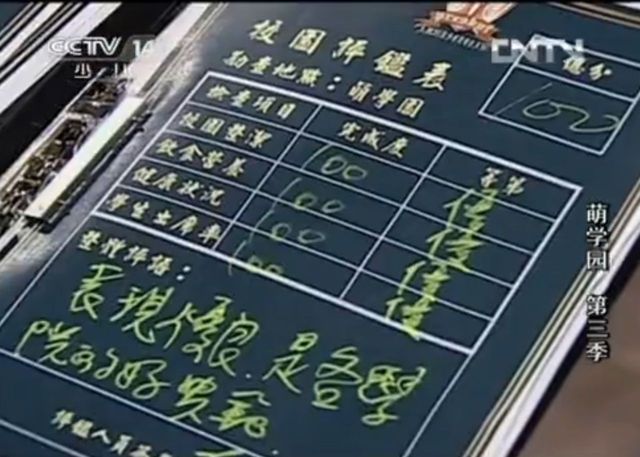 CCTV 14
少儿
CNTV
校園評鑑表
總分
100
勘查地點：萌學園
檢查項目 完成度 等第
校園整潔 100 優
飲食營養 100 優
健康狀況 100 優
學生出席率 100 優
整體評語：
表現優良.是各學
院的好典範.
評鑑人員簽
萌学园 第三季